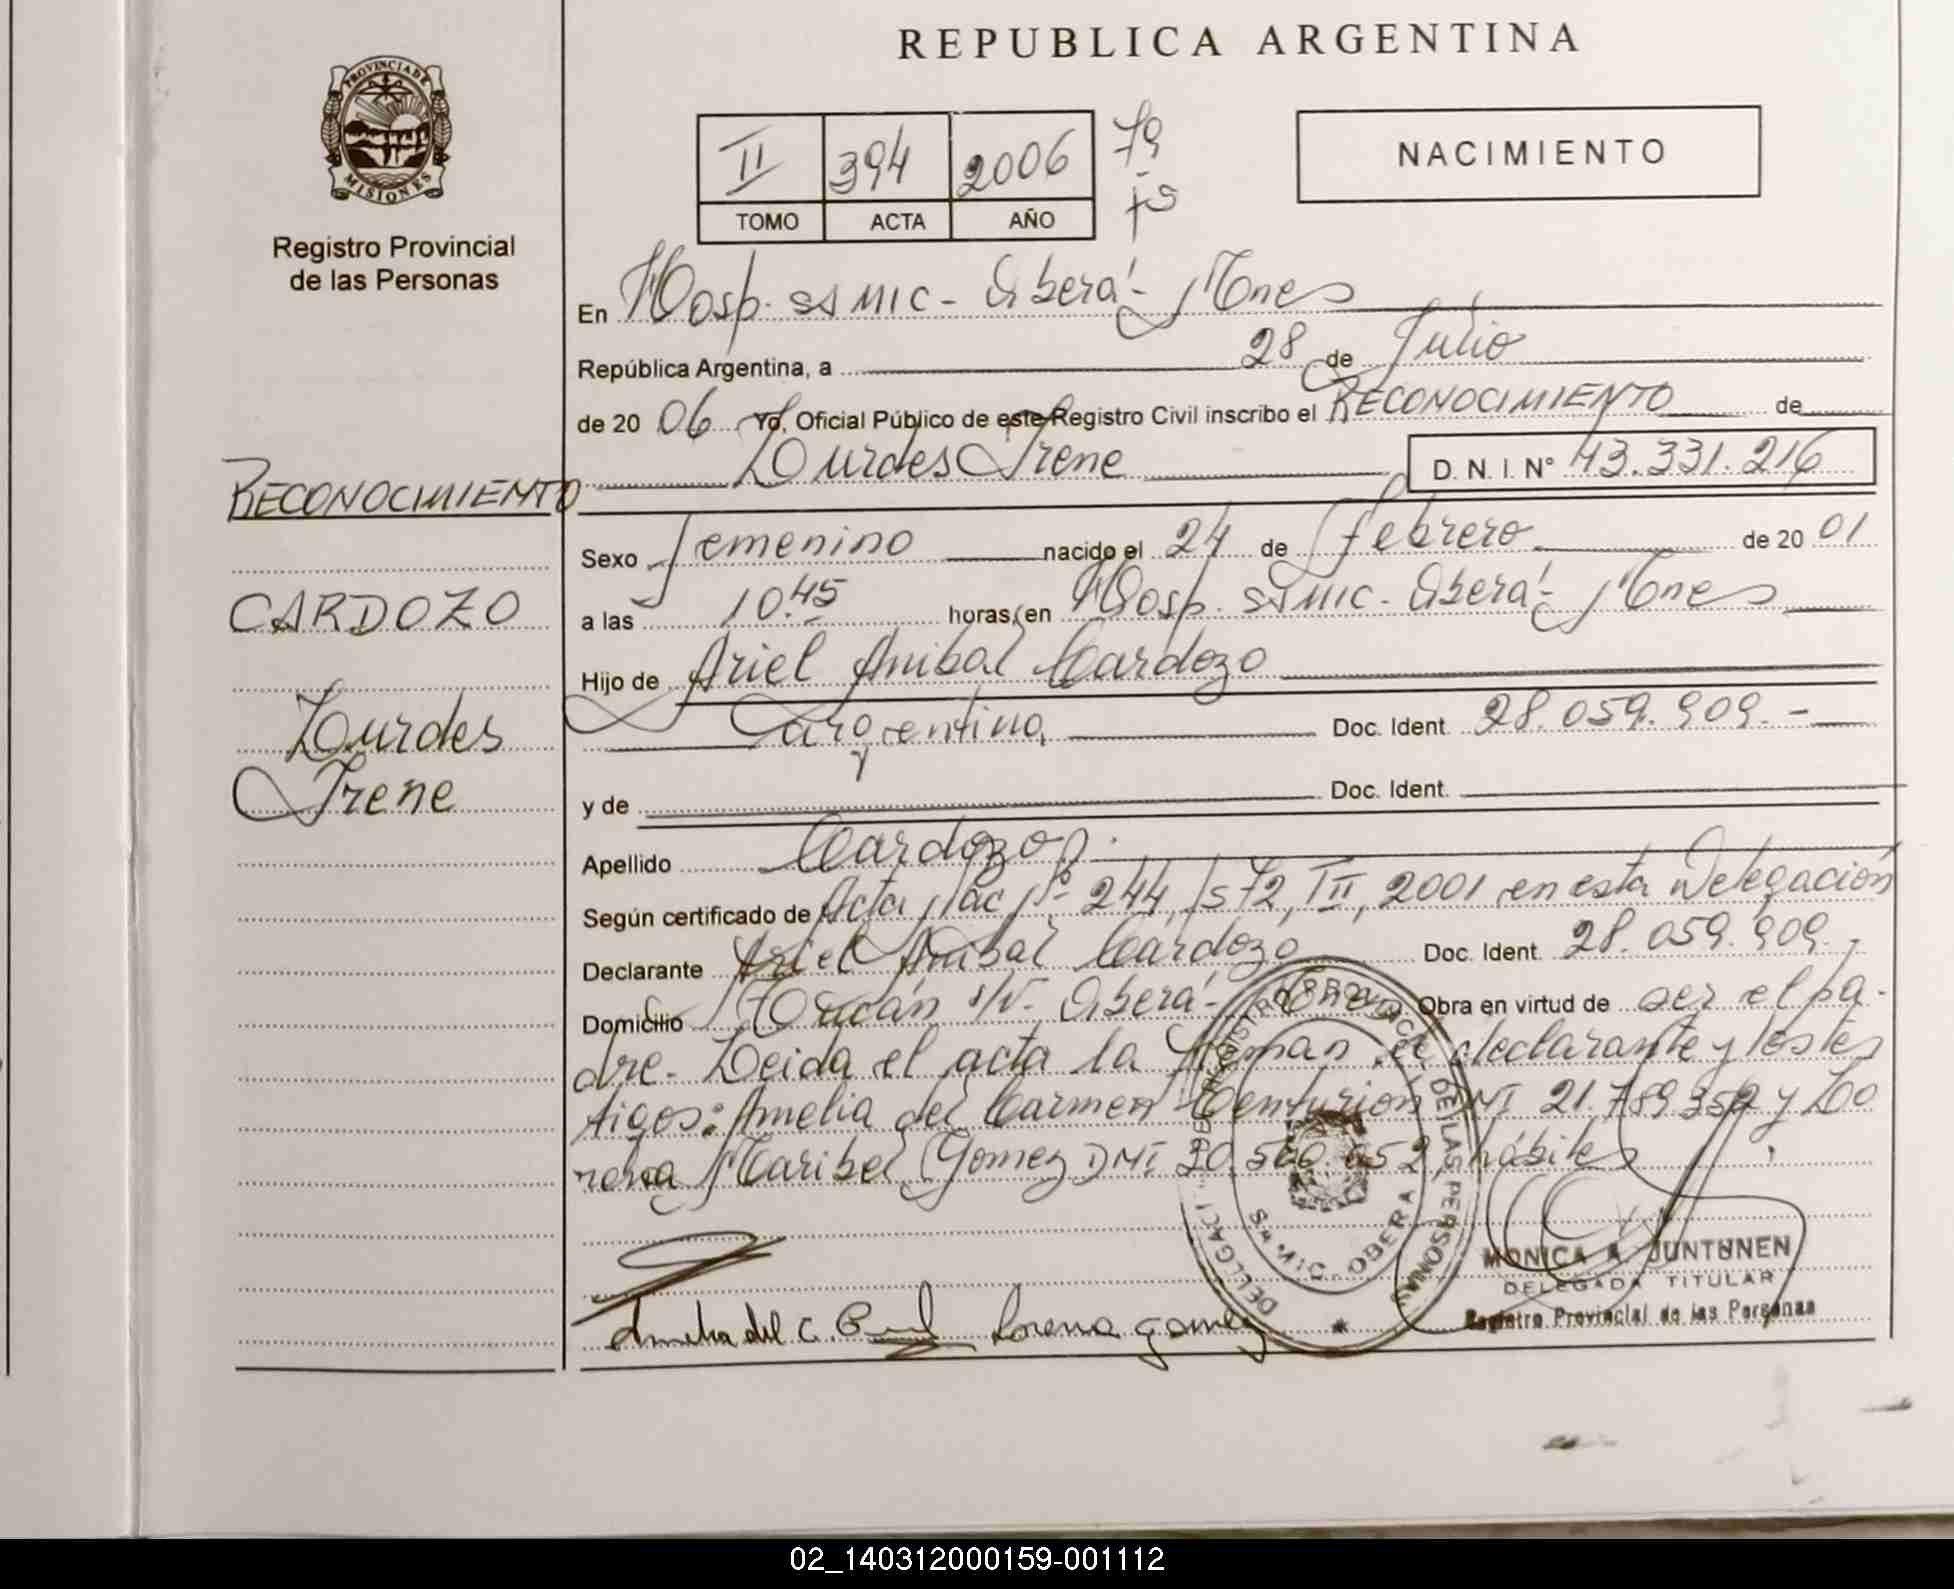 REPUBLICA ARGENTINA
PROVINCIA DE MISIONES
Registro Provincial
de las Personas
II 394 2006 79
TOMO ACTA AÑO
NACIMIENTO
En Hosp. SAMIC - Oberá - Mnes
República Argentina, a 28 de Julio
de 20 06 Yo, Oficial Público de este Registro Civil inscribo el RECONOCIMIENTO de
Lourdes Irene D. N. I. N° 43.331.216
RECONOCIMIENTO
Sexo femenino nacido el 24 de febrero de 20 01
a las 10.45 horas, en Hosp. SAMIC - Oberá - Mnes
CARDOZO
Hijo de Ariel Anibal Cardozo
argentino, Doc. Ident. 28.059.909.-
Lourdes
Irene
y de Doc. Ident.
Apellido Cardozo
Según certificado de Acta Nac Nº 244, Fs 72, TII, 2001 en esta Delegación
Declarante Ariel Anibal Cardozo Doc. Ident. 28.059.909.-
Domicilio Tucán s/N. Oberá - Mnes. Obra en virtud de ser el pa-
dre. Leida el acta la firman el declarante y testes
tigos: Amelia del Carmen Centurión DNI 21.789.352 y Lo
rena Maribel Gomez DNI 30.560.652, hábiles
REGISTRO PROVINCIAL DE LAS PERSONAS
DELEGACI
S.A.M.I.C. - OBERA
MONICA A. JUNTUNEN
DELEGADA TITULAR
Registro Provincial de las Personas
Amelia del C. Lorena gomez
02_140312000159-001112